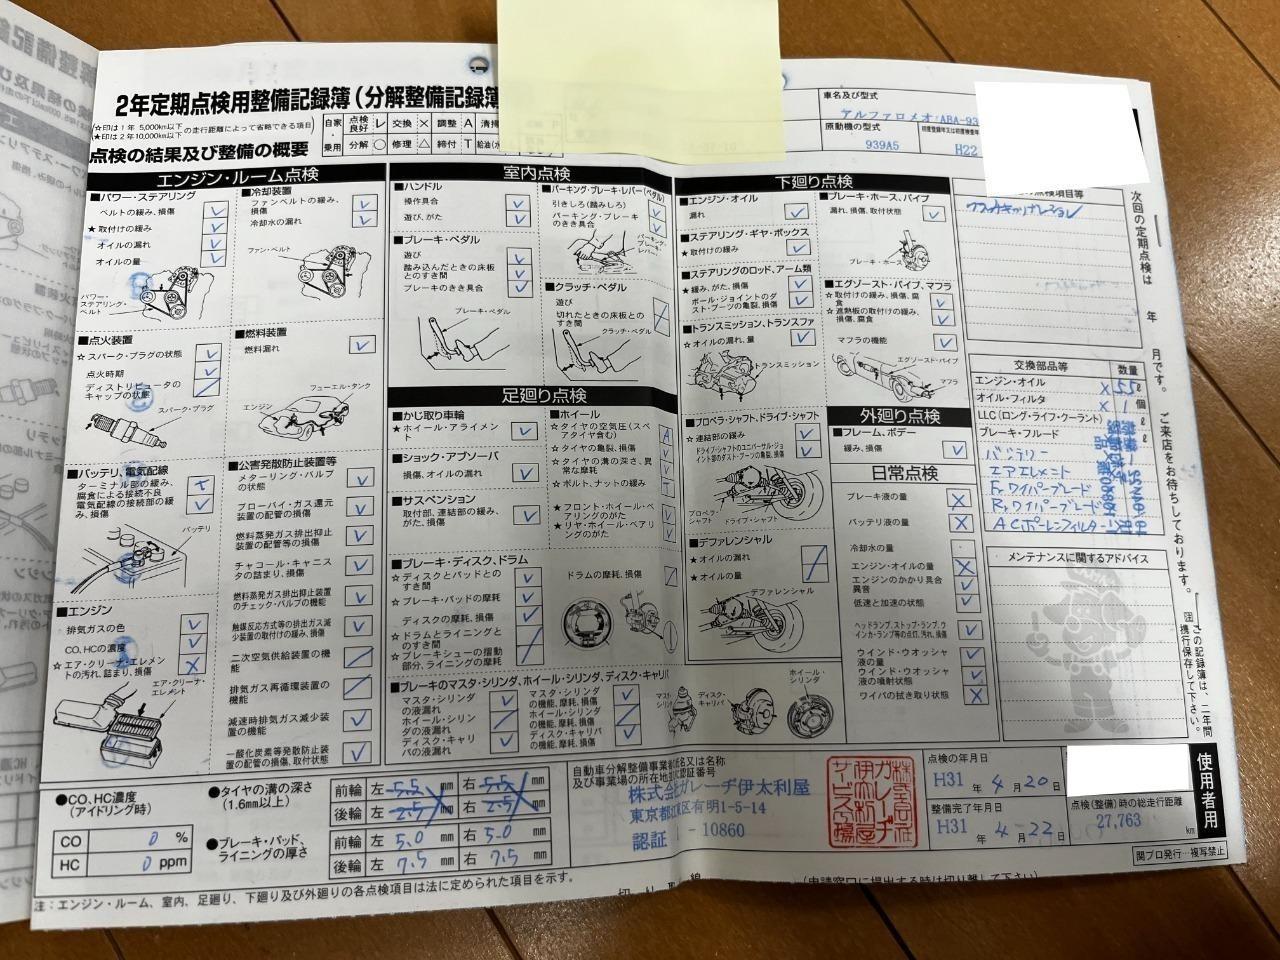 2年定期点検用整備記録簿(分解整備記録簿
☆印は1年 5,000km以下
★印は2年10,000km以下
の走行距離によって省略できる項目
点検の結果及び整備の概要
自家・乗用
点検良好 レ 交換 × 調整 A 清掃
分解 ○ 修理 △ 締付 T 給油(水
車名及び型式
アルファロメオ/ABA-93
原動機の型式
939A5
H22
エンジン・ルーム点検
■パワー・ステアリング
ベルトの緩み、損傷
★取付けの緩み
オイルの漏れ
オイルの量
パワー・ステアリング・ベルト
■点火装置
☆スパーク・プラグの状態
点火時期
ディストリビュータのキャップの状態
スパーク・プラグ
■バッテリ、電気配線
ターミナル部の緩み、腐食による接続不良
電気配線の接続部の緩み、損傷
バッテリ
■エンジン
排気ガスの色
CO、HCの濃度
☆エア・クリーナ・エレメントの汚れ、詰まり、損傷
エア・クリーナ・エレメント
■冷却装置
ファンベルトの緩み、損傷
冷却水の漏れ
ファン・ベルト
■燃料装置
燃料漏れ
フューエル・タンク
エンジン
■公害発散防止装置等
メターリング・バルブの状態
ブローバイ・ガス還元装置の配管の損傷
燃料蒸発ガス排出抑止装置の配管等の損傷
チャコール・キャニスタの詰まり、損傷
燃料蒸発ガス排出抑止装置のチェック・バルブの機能
触媒反応方式等の排出ガス減少装置の取付けの緩み、損傷
二次空気供給装置の機能
排気ガス再循環装置の機能
減速時排気ガス減少装置の機能
一酸化炭素等発散防止装置の配管の損傷、取付状態
室内点検
■ハンドル
操作具合
遊び、がた
■ブレーキ・ペダル
遊び
踏み込んだときの床板とのすき間
ブレーキのきき具合
ブレーキ・ペダル
■パーキング・ブレーキ・レバー(ペダル)
引きしろ(踏みしろ)
パーキング・ブレーキのきき具合
パーキング・ブレーキ・レバー
■クラッチ・ペダル
遊び
切れたときの床板とのすき間
クラッチ・ペダル
足廻り点検
■かじ取り車輪
★ホイール・アライメント
■ショック・アブソーバ
損傷、オイルの漏れ
■サスペンション
取付部、連結部の緩み、がた、損傷
■ホイール
☆タイヤの空気圧(スペアタイヤ含む)
☆タイヤの亀裂、損傷
☆タイヤの溝の深さ、異常な摩耗
☆ボルト、ナットの緩み
★フロント・ホイール・ベアリングのがた
★リヤ・ホイール・ベアリングのがた
■ブレーキ・ディスク、ドラム
☆ディスクとパッドとのすき間
☆ブレーキ・パッドの摩耗
ディスクの摩耗、損傷
☆ドラムとライニングとのすき間
☆ブレーキシューの摺動部分、ライニングの摩耗
ドラムの摩耗、損傷
■ブレーキのマスタ・シリンダ、ホイール・シリンダ、ディスク・キャリパ
マスタ・シリンダの液漏れ
ホイール・シリンダの液漏れ
ディスク・キャリパの液漏れ
マスタ・シリンダの機能、摩耗、損傷
ホイール・シリンダの機能、摩耗、損傷
ディスク・キャリパの機能、摩耗、損傷
ディスク・キャリパ
ホイール・シリンダ
下廻り点検
■エンジン・オイル
漏れ
■ステアリング・ギヤ・ボックス
★取付けの緩み
■ステアリングのロッド、アーム類
★緩み、がた、損傷
ボール・ジョイントのダスト・ブーツの亀裂、損傷
■トランスミッション、トランスファ
☆オイルの漏れ、量
トランスミッション
■プロペラ・シャフト、ドライブ・シャフト
☆連結部の緩み
ドライブ・シャフトのユニバーサル・ジョイント部のダスト・ブーツの亀裂、損傷
プロペラ・シャフト
ドライブ・シャフト
■デファレンシャル
★オイルの漏れ
★オイルの量
デファレンシャル
■ブレーキ・ホース、パイプ
漏れ、損傷、取付状態
ブレーキ・ホース
■エグゾースト・パイプ、マフラ
☆取付けの緩み、損傷、腐食
☆遮熱板の取付けの緩み、損傷、腐食
マフラの機能
エグゾースト・パイプ
マフラ
外廻り点検
■フレーム、ボデー
緩み、損傷
日常点検
ブレーキ液の量
バッテリ液の量
冷却水の量
エンジン・オイルの量
エンジンのかかり具合異音
低速と加速の状態
ヘッドランプ、ストップ・ランプ、ウインカ・ランプ等の点灯、汚れ、損傷
ウインド・ウオッシャ液の量
ウインド・ウオッシャ液の噴射状態
ワイパの拭き取り状態
の点検項目等
交換部品等 数量
エンジン・オイル × 5.5 ℓ
オイル・フィルタ × 1 個
LLC(ロング・ライフ・クーラント) ℓ
ブレーキ・フルード ℓ
バッテリー
エアエレメント
Frワイパーブレード
Rrワイパーブレード
ACポーレンフィルター
メンテナンスに関するアドバイス
次回の定期点検は 年 月です。ご来店をお待ちしております。
この記録簿は、二年間携行保存して下さい。
使用者用
●CO、HC濃度(アイドリング時)
CO 0 %
HC 0 ppm
●タイヤの溝の深さ(1.6mm以上)
前輪 左 5.5 右 5.5 mm
後輪 左 2.5 右 2.5 mm
●ブレーキ・パッド、ライニングの厚さ
前輪 左 5.0 右 5.0 mm
後輪 左 7.5 右 7.5 mm
株式会社ガレーヂ伊太利屋
東京都江東区有明1-5-14
認証 - 10860
株式会社ガレーヂ伊太利屋サービス工場
点検の年月日
H31 年 4 月 20 日
整備完了年月日
H31 年 4 月 22 日
点検(整備)時の総走行距離
27,763 km
関プロ発行…複写禁止
注:エンジン・ルーム、室内、足廻り、下廻り及び外廻りの各点検項目は法に定められた項目を示す。
(申請窓口に提出する時は切り離して下さい)